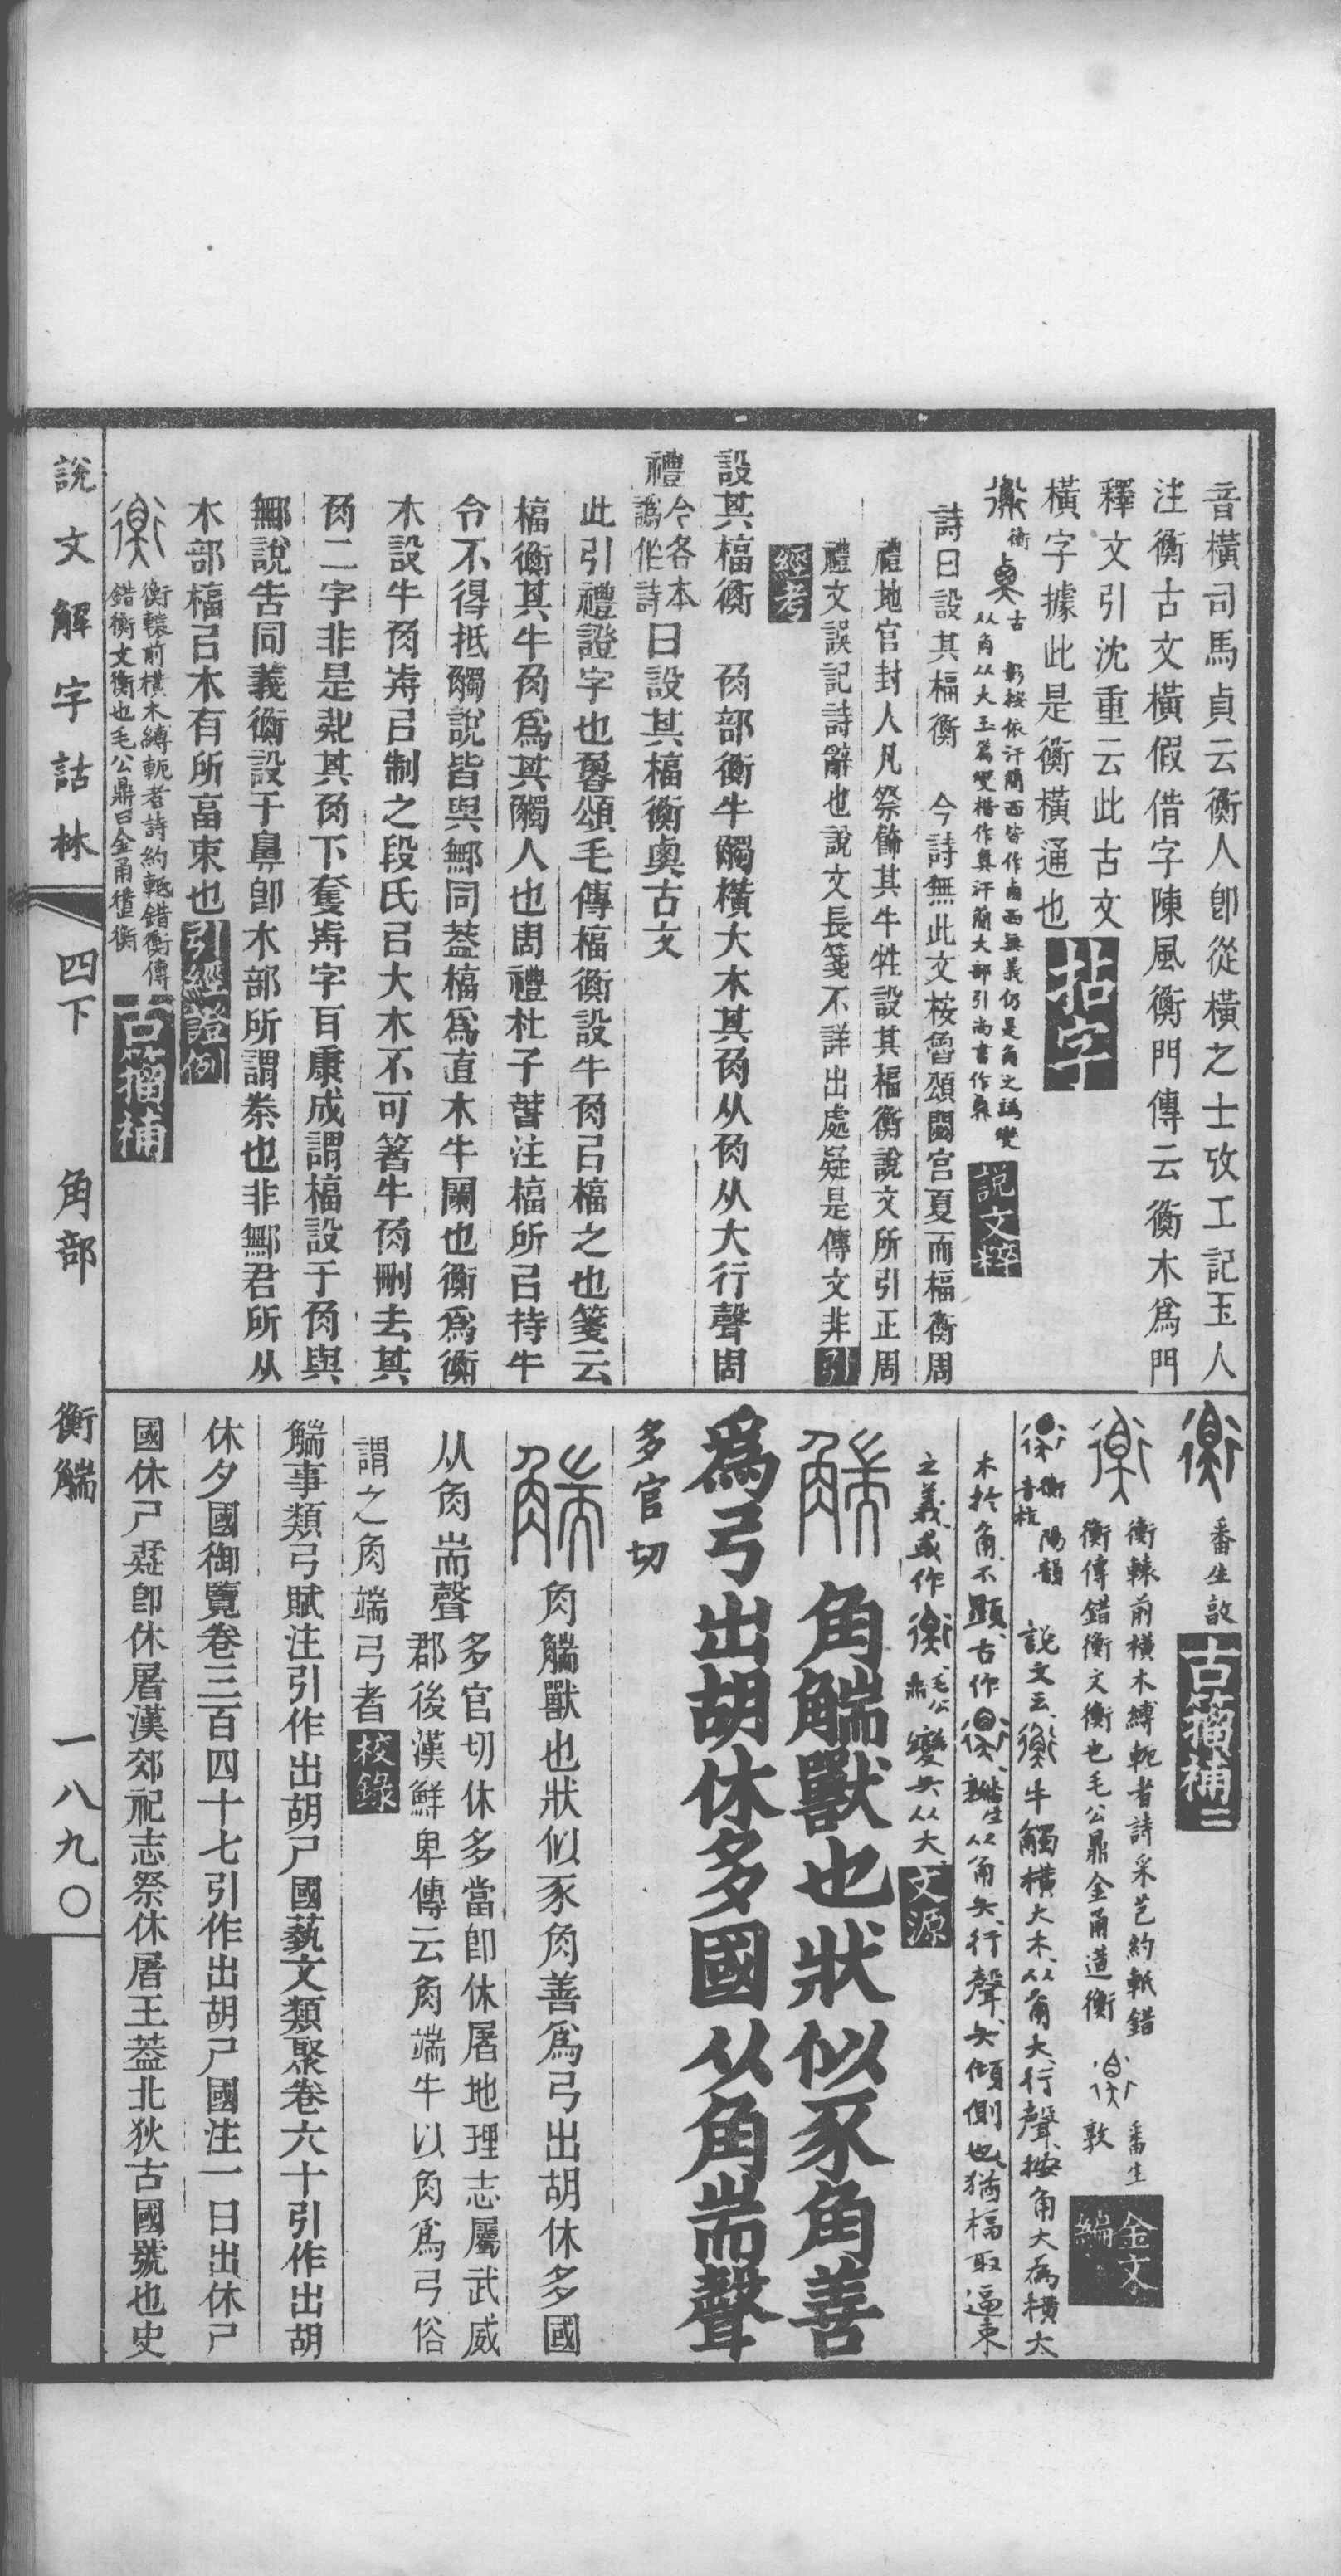 音橫司馬貞云衡人卽從橫之士攷工記玉人
注衡古文橫假借字陳風衡門傳云衡木爲門
釋文引沈重云此古文
橫字據此是衡橫通也 拈字
衡 古 彰桉依汗簡西皆作卥西無義仍是角之譌變
从角从大玉篇變楷作奧汗簡大部引尚書作奧 說文粹
詩曰設其楅衡 今詩無此文桉魯頌閟宮夏而楅衡周
禮地官封人凡祭飾其牛牲設其楅衡說文所引正周
禮文誤記詩辭也說文長箋不詳出處疑是傳文非 引
經考
設其楅衡 角部衡牛觸橫大木其角从角从大行聲周
禮 今各本譌作詩 曰設其楅衡奧古文
此引禮證字也魯頌毛傳楅衡設牛角㠯楅之也箋云
楅衡其牛角爲其觸人也周禮杜子春注楅所㠯持牛
令不得抵觸說皆與鄦同葢楅爲直木牛闌也衡爲衡
木設牛角歬㠯制之段氏㠯大木不可箸牛角刪去其
角二字非是其角下奪歬字百康成謂楅設于角與
鄦說告同義衡設于鼻卽木部所謂桊也非鄦君所从
木部楅㠯木有所畐束也 引經證例
衡轅前橫木縛軛者詩約軝錯衡傳
錯衡文衡也毛公鼎曰金甬衡 古籀補
番生敦 古籀補二
衡轅前橫木縛軛者詩采芑約軝錯
衡傳錯衡文衡也毛公鼎金甬道衡 番生敦 金文編
衡 音杭 陽韻 說文云衡牛觸橫大木从角大行聲按角大爲橫大
木於角不顯古作 番生敦 从角矢行聲矢傾側也猶楅取逼束
之義或作 毛公鼎 變矢从大 文源
角觿獸也狀似豕角善
爲弓出胡休多國从角耑聲
多官切
角觿獸也狀似豕角善爲弓出胡休多國
从角耑聲 多官切休多當卽休屠地理志屬武威
郡後漢鮮卑傳云角端牛以角爲弓俗
謂之角端弓者 校錄
觿事類弓賦注引作出胡尸國藝文類聚卷六十引作出胡
休夕國御覽卷三百四十七引作出胡尸國注一曰出休尸
國休尸疑卽休屠漢郊祀志祭休屠王葢北狄古國號也史
說文解字詁林 四下 角部 衡觿 一八九〇